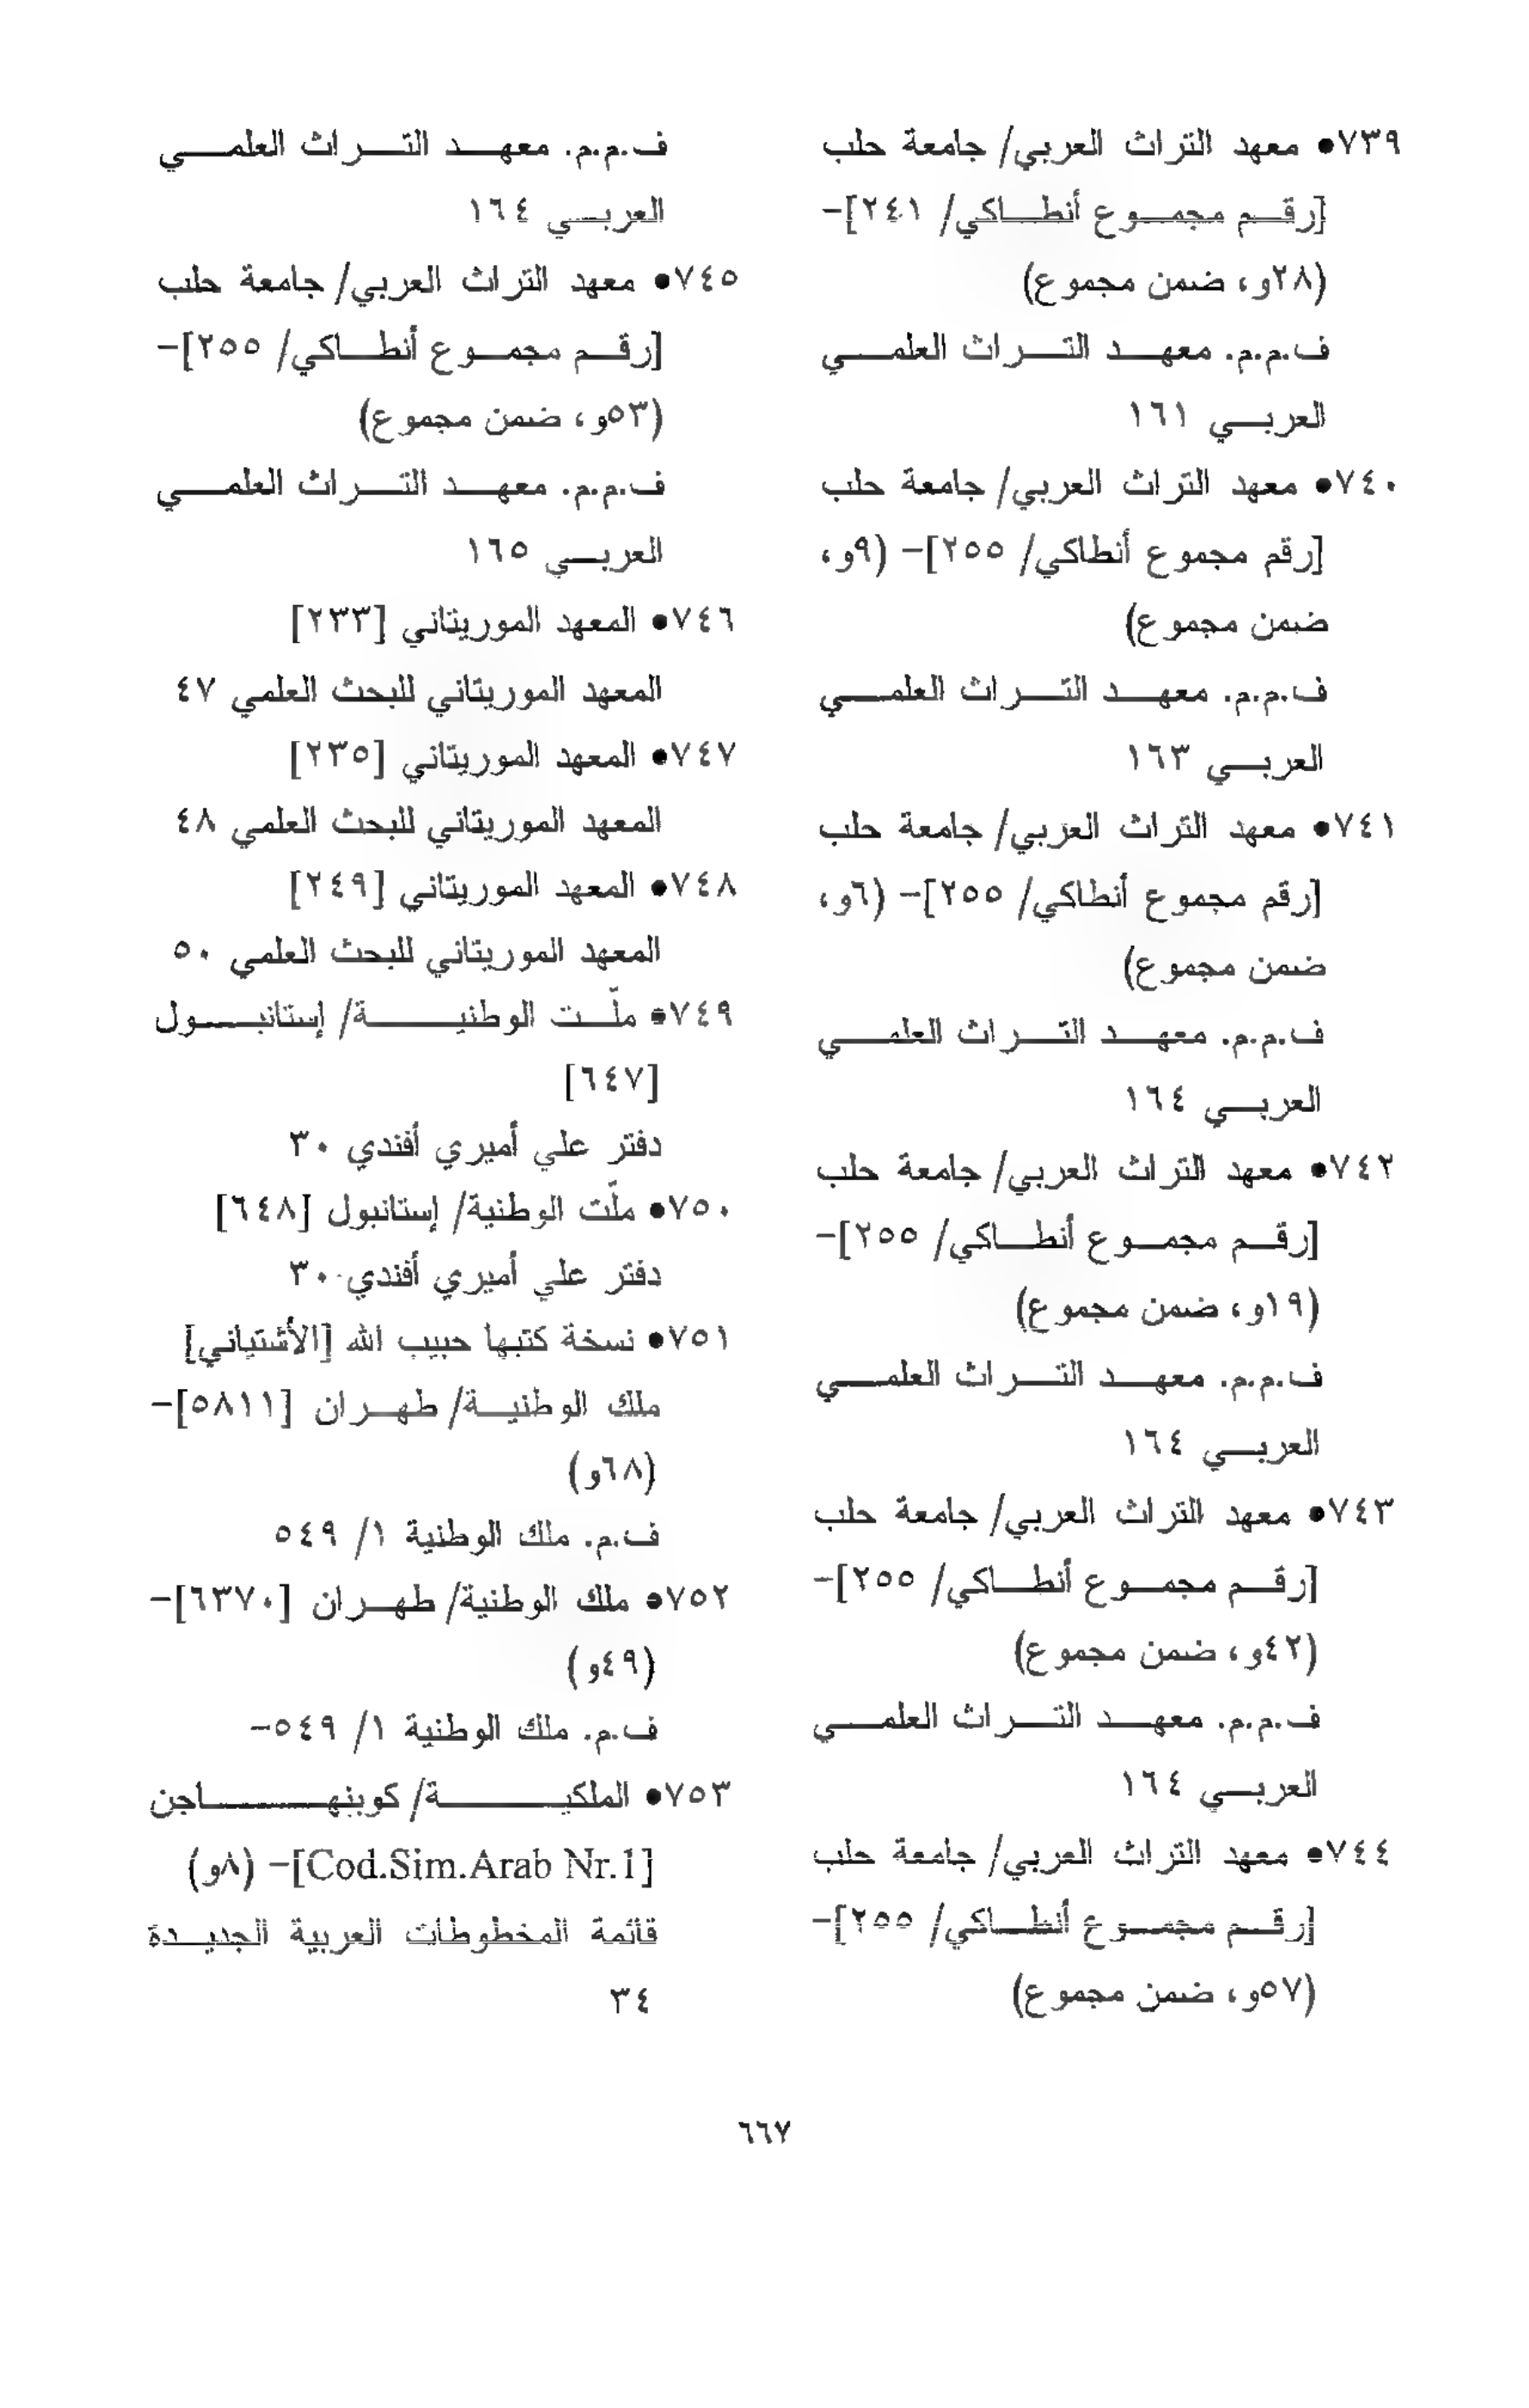 ٧٣٩● معهد التراث العربي/ جامعة حلب
[رقم مجموع أنطاكي/ ٢٤١]-
(٢٨و، ضمن مجموع)
ف.م.م. معهد التراث العلمي
العربي ١٦١
٧٤٠● معهد التراث العربي/ جامعة حلب
[رقم مجموع أنطاكي/ ٢٥٥]- (٩و،
ضمن مجموع)
ف.م.م. معهد التراث العلمي
العربي ١٦٣
٧٤١● معهد التراث العربي/ جامعة حلب
[رقم مجموع أنطاكي/ ٢٥٥]- (٦و،
ضمن مجموع)
ف.م.م. معهد التراث العلمي
العربي ١٦٤
٧٤٢● معهد التراث العربي/ جامعة حلب
[رقم مجموع أنطاكي/ ٢٥٥]-
(١٩و، ضمن مجموع)
ف.م.م. معهد التراث العلمي
العربي ١٦٤
٧٤٣● معهد التراث العربي/ جامعة حلب
[رقم مجموع أنطاكي/ ٢٥٥]-
(٤٢و، ضمن مجموع)
ف.م.م. معهد التراث العلمي
العربي ١٦٤
٧٤٤● معهد التراث العربي/ جامعة حلب
[رقم مجموع أنطاكي/ ٢٥٥]-
(٥٧و، ضمن مجموع)
ف.م.م. معهد التراث العلمي
العربي ١٦٤
٧٤٥● معهد التراث العربي/ جامعة حلب
[رقم مجموع أنطاكي/ ٢٥٥]-
(٥٣و، ضمن مجموع)
ف.م.م. معهد التراث العلمي
العربي ١٦٥
٧٤٦● المعهد الموريتاني [٢٣٣]
المعهد الموريتاني للبحث العلمي ٤٧
٧٤٧● المعهد الموريتاني [٢٣٥]
المعهد الموريتاني للبحث العلمي ٤٨
٧٤٨● المعهد الموريتاني [٢٤٩]
المعهد الموريتاني للبحث العلمي ٥٠
٧٤٩● ملّت الوطنية/ إستانبول
[٦٤٧]
دفتر علي أميري أفندي ٣٠
٧٥٠● ملّت الوطنية/ إستانبول [٦٤٨]
دفتر علي أميري أفندي ٣٠
٧٥١● نسخة كتبها حبيب الله [الأشتياني]
ملك الوطنية/ طهران [٥٨١١]-
(٦٨و)
ف.م. ملك الوطنية ١/ ٥٤٩
٧٥٢● ملك الوطنية/ طهران [٦٣٧٠]-
(٤٩و)
ف.م. ملك الوطنية ١/ ٥٤٩-
٧٥٣● الملكية/ كوبنهاجن
[Cod.Sim.Arab Nr.1]- (٨و)
قائمة المخطوطات العربية الجديدة
٣٤
٦٦٧